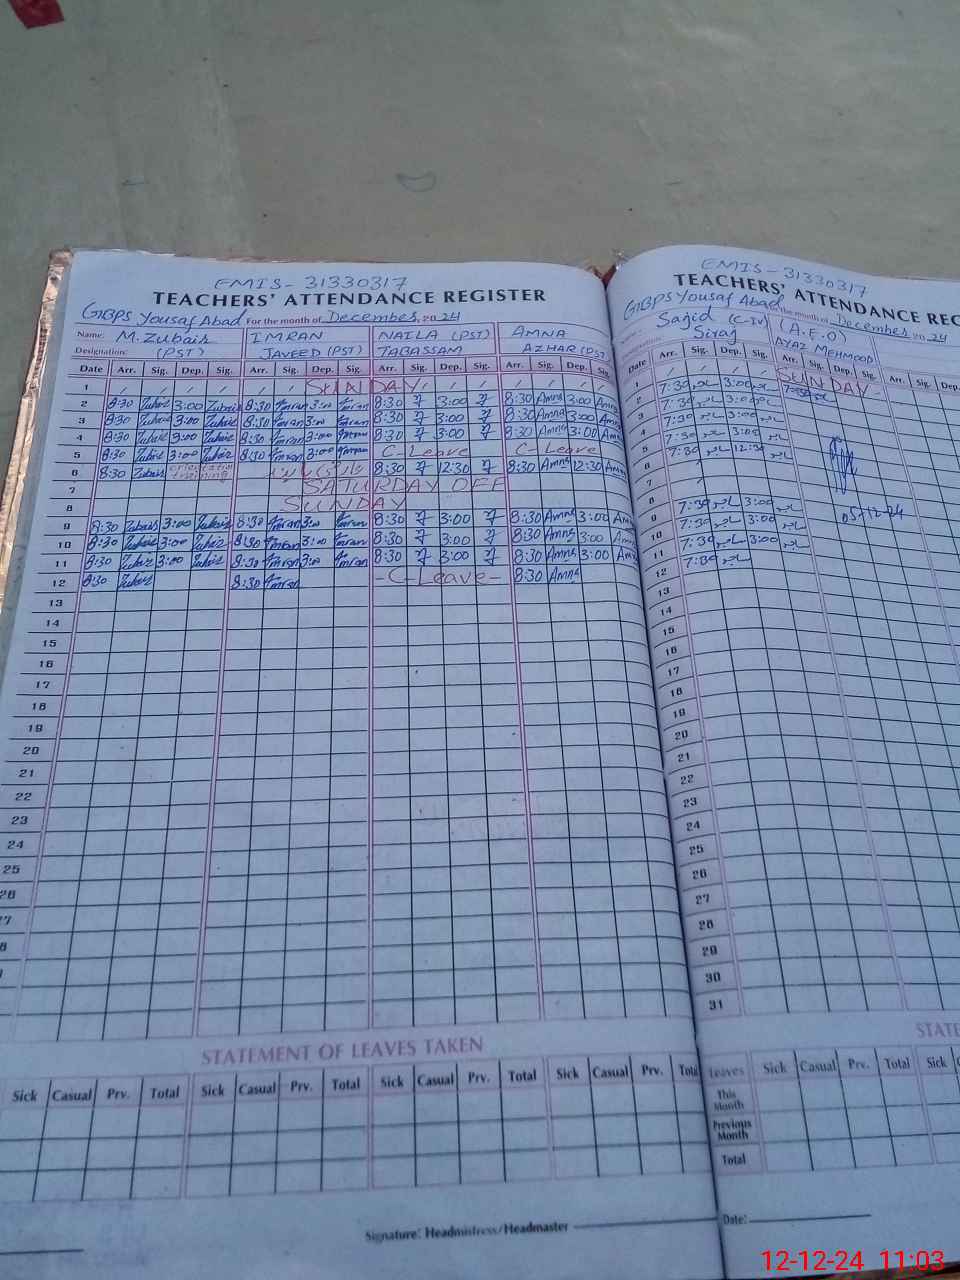 EMIS- 31330317
TEACHERS' ATTENDANCE REGISTER
GBPS Yousaf Abad For the month of December 20 24
Name: M. Zubair IMRAN NAILA (PST) AMNA
Designation: (PST) JAVEED (PST) TABASSAM AZHAR (PST)
Date Arr. Sig. Dep. Sig. Arr. Sig. Dep. Sig. Arr. Sig. Dep. Sig. Arr. Sig. Dep. Sig.
1 SUNDAY
2 8:30 Zubair 3:00 Zubair 8:30 Imran 3:00 Imran 8:30 3:00 8:30 Amna 3:00 Amna
3 8:30 Zubair 3:00 Zubair 8:30 Imran 3:00 Imran 8:30 3:00 8:30 Amna 3:00 Amna
4 8:30 Zubair 3:00 Zubair 8:30 Imran 3:00 Imran 8:30 3:00 8:30 Amna 3:00 Amna
5 8:30 Zubair 3:00 Zubair 8:30 Imran 3:00 Imran C-Leave C-Leave
6 8:30 Zubair 8:30 12:30 8:30 Amna 12:30 Amna
7 SATURDAY OFF
8 SUNDAY
9 8:30 Zubair 3:00 Zubair 8:30 Imran 3:00 Imran 8:30 3:00 8:30 Amna 3:00 Amna
10 8:30 Zubair 3:00 Zubair 8:30 Imran 3:00 Imran 8:30 3:00 8:30 Amna 3:00 Amna
11 8:30 Zubair 3:00 Zubair 8:30 Imran 3:00 Imran 8:30 3:00 8:30 Amna 3:00 Amna
12 8:30 Zubair 8:30 Imran -C-Leave- 8:30 Amna
13
14
15
16
17
18
19
20
21
22
23
24
25
26
27
STATEMENT OF LEAVES TAKEN
Sick Casual Prv. Total Sick Casual Prv. Total Sick Casual Prv. Total Sick Casual Prv. Total
Signature: Headmistress/Headmaster
EMIS- 31330317
TEACHERS' ATTENDANCE REG
GBPS Yousaf Abad For the month of December 20 24
Sajid (C-IV) (A.E.O)
Siraj AYAZ MEHMOOD
Date Arr. Sig. Dep. Sig. Arr. Sig. Dep. Sig. Arr. Sig. Dep.
1 SUNDAY
2 7:30 3:00
3 7:30 3:00
4 7:30 3:00
5 7:30 3:00
6 7:30 12:30
7
8
9 7:30 3:00
10 7:30 3:00
11 7:30 3:00
12 7:30
05-12-24
13
14
15
16
17
18
19
20
21
22
23
24
25
26
27
28
29
30
31
STATE
Leaves Sick Casual Prv. Total Sick
This Month
Previous Month
Total
Date:
12-12-24 11:03